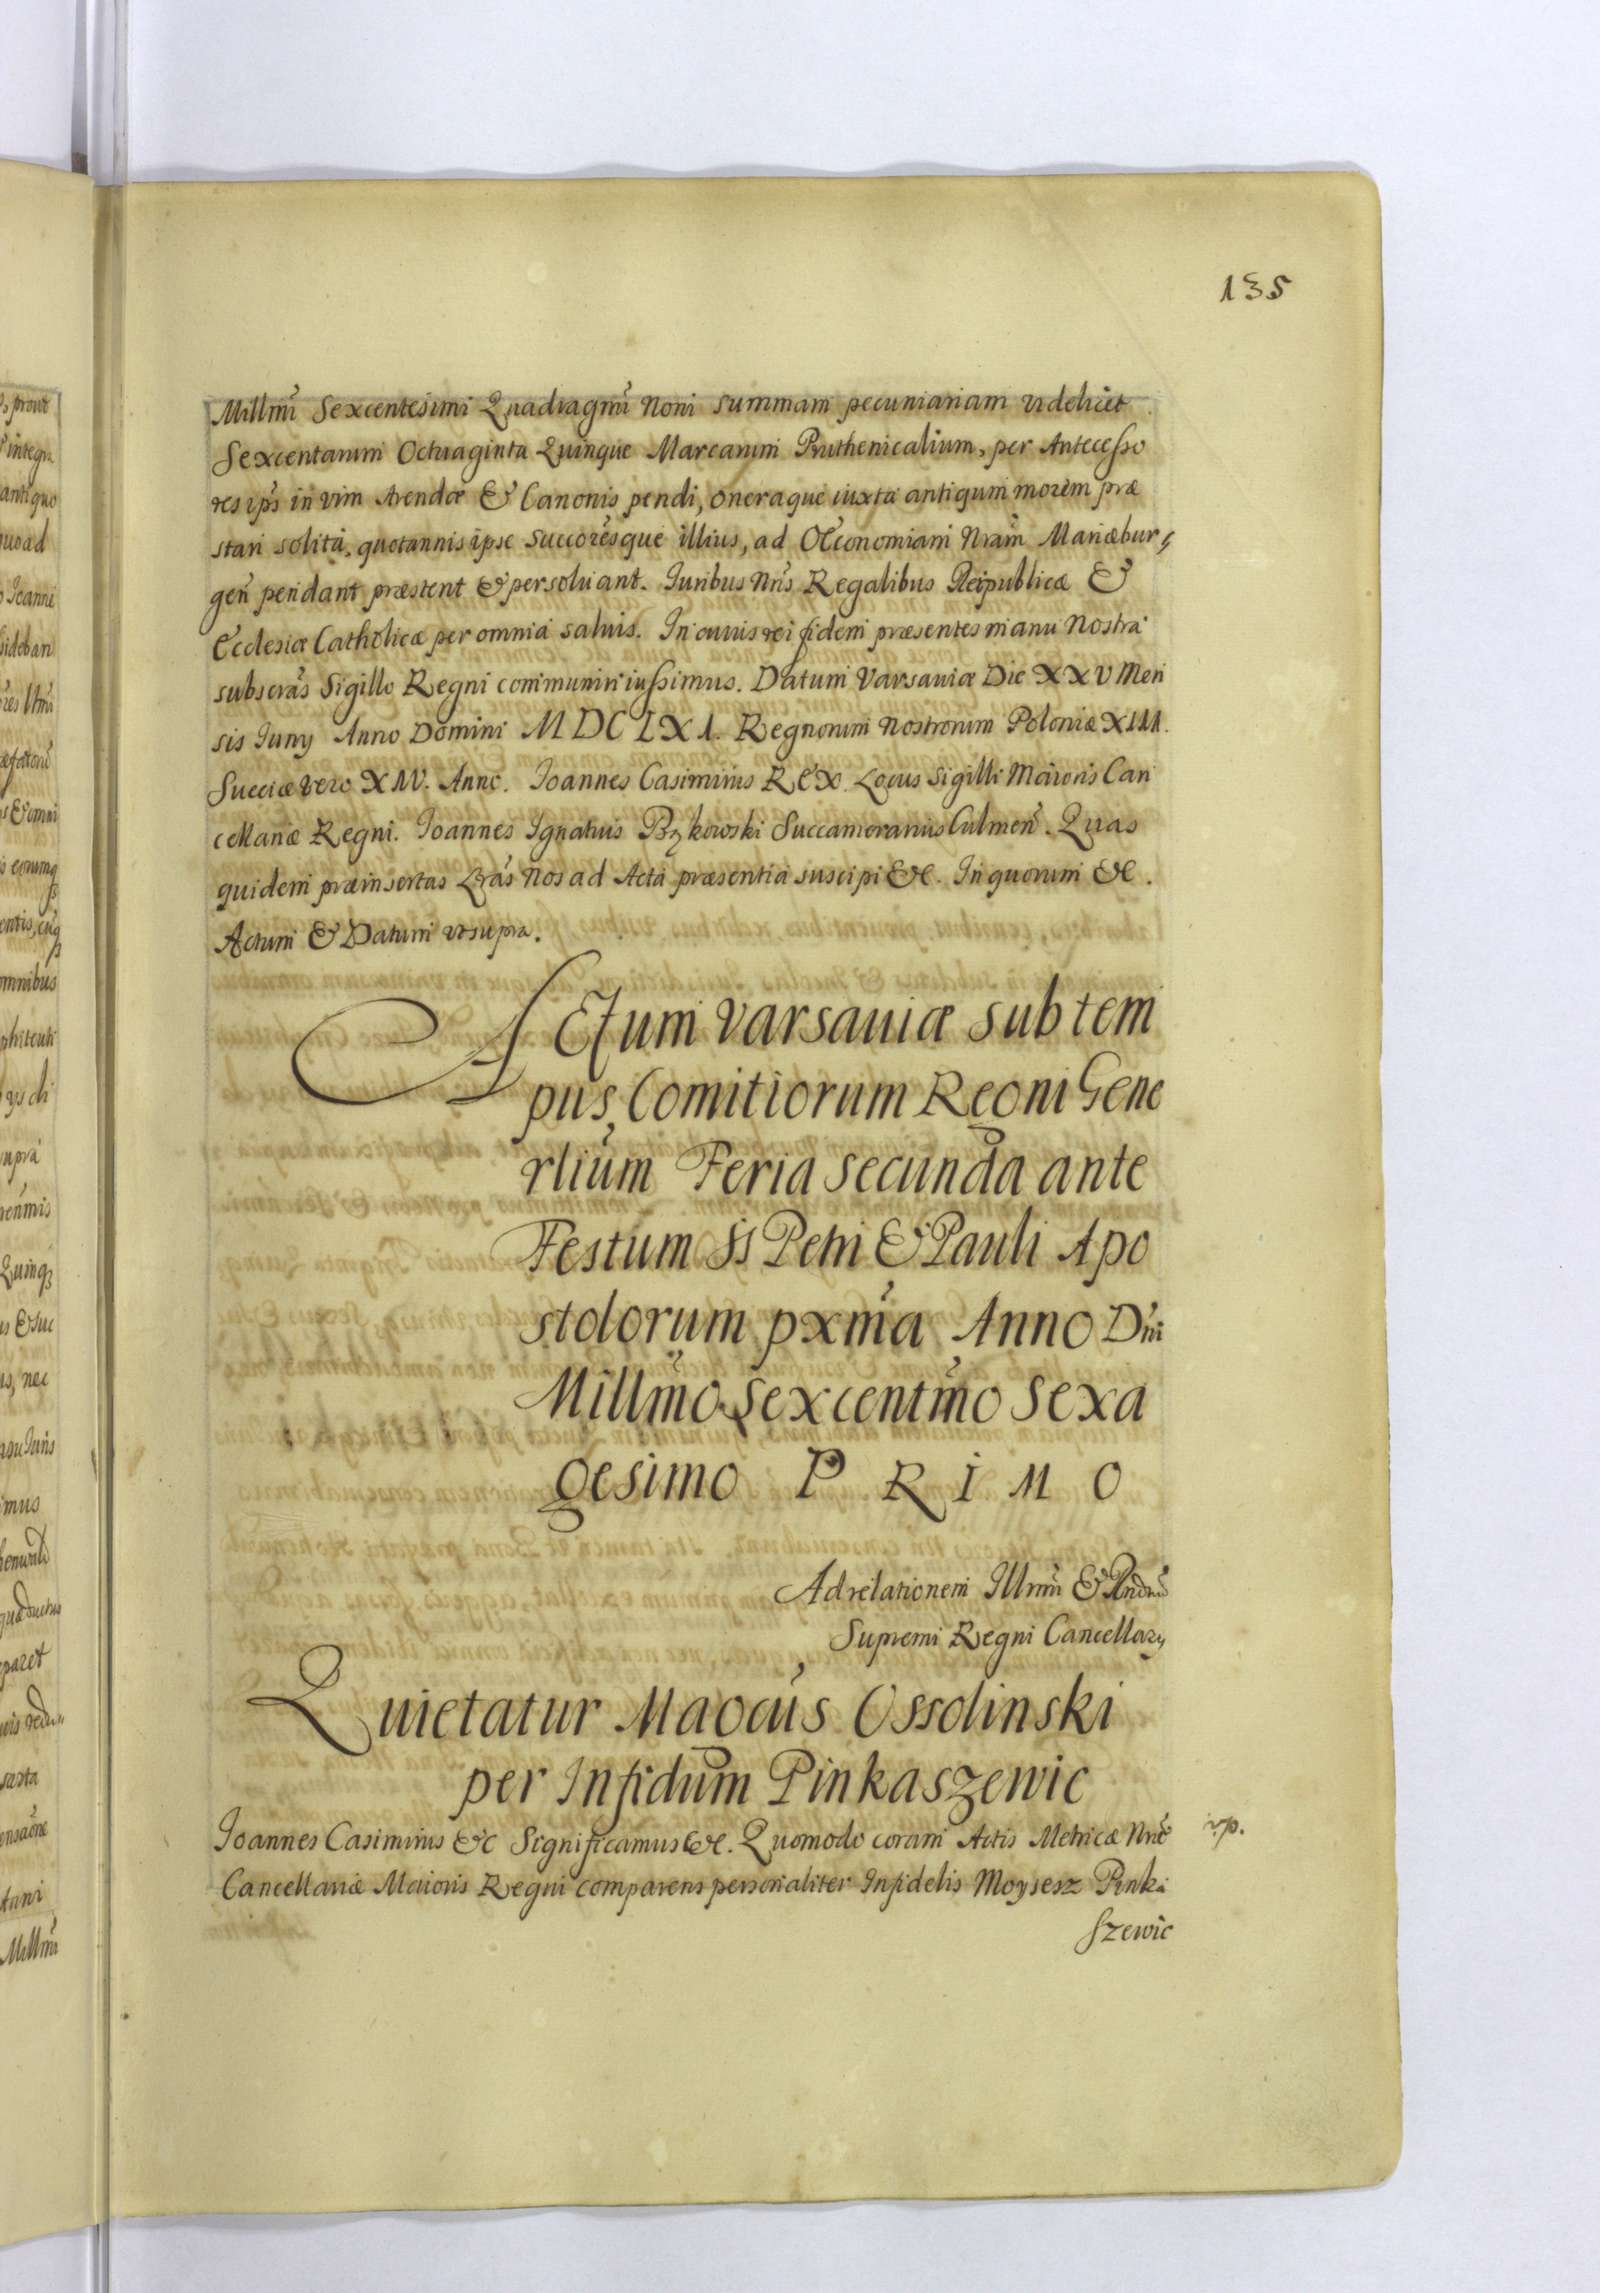 135
Millmi Sexcentesimi Quadragmi Noni summam pecuniariam videlicet
Sexcentarum Octuaginta Quinque Marcarum Pruthenicalium, per Antecesso
res ips in vim Arendæ & Canonis pendi, oneraque iuxta antiqum morem præ
stari solita, quotannis ipse Succoresque illius, ad Oeconomiam Nram Mariæbur
gen pendant præstent & persoluant. Iuribus Nris Regalibus Reipublicæ &
Ecclesiæ Catholicæ per omnia saluis. In cuius rei fidem præsentes manu Nostra
subscras Sigillo Regni communiri iussimus. Datum Varsauiæ Die XXV Men
sis Iuny Anno Domini MDCLXI. Regnorum Nostrorum Poloniæ XIII.
Sueciæ vero XIV. Anno. Ioannes Casimirus REX. Locus Sigilli Maioris Can
cellariæ Regni. Ioannes Ignatius Bąkowski Succamerarius Culmen. Quas
quidem præinsertas Lras Nos ad Acta præsentia suscipi &c. In quorum &c.
Actum & Datum vt supra.
ACtum Varsauiæ sub tem
pus Comitiorum Regni Gene
rlium Feria secunda ante
Festum SS Petri & Pauli Apo
stolorum pxma Anno Dni
Millmo Sexcentmo Sexa
gesimo PRIMO
Ad relationem Illrmi & Rndmi
Supremi Regni Cancellary
Quietatur Magcus Ossolinski
per Infidum Pinkaszewic
Ioannes Casimirus &c Significamus &c. Quomodo coram Actis Metricæ Nræ
Cancellariæ Maioris Regni comparens personaliter Infidelis Moysesz Pinka
szewic